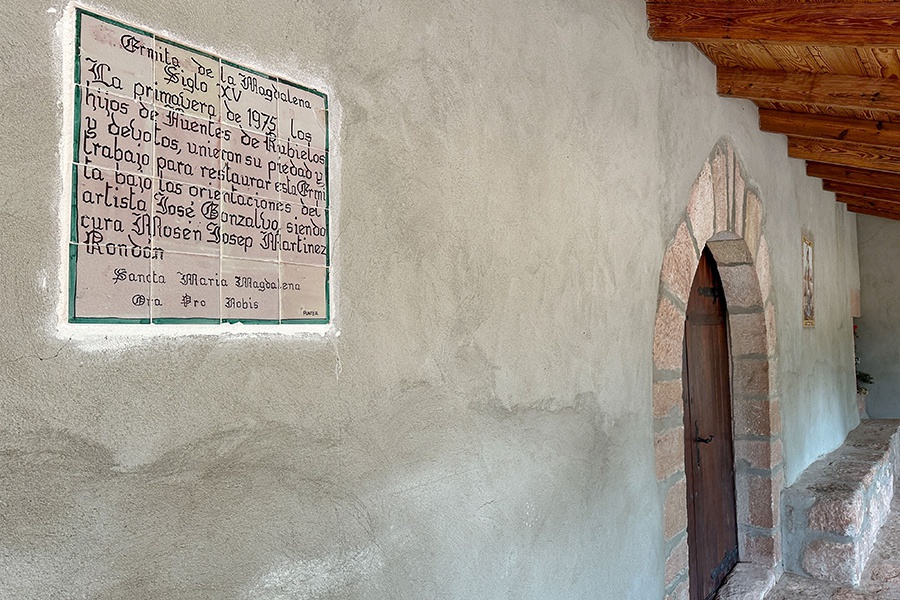 Ermita de la Magdalena
Siglo XV
La primavera de 1975 los
hijos de Fuentes de Rubielos
y devotos, unieron su piedad y
trabajo para restaurar esta Ermi
ta bajo las orientaciones del
artista José Gonzalvo, siendo
cura Mosén Josep Martinez
Rondón
Sancta Maria Magdalena
Ora Pro Nobis
PUNTER